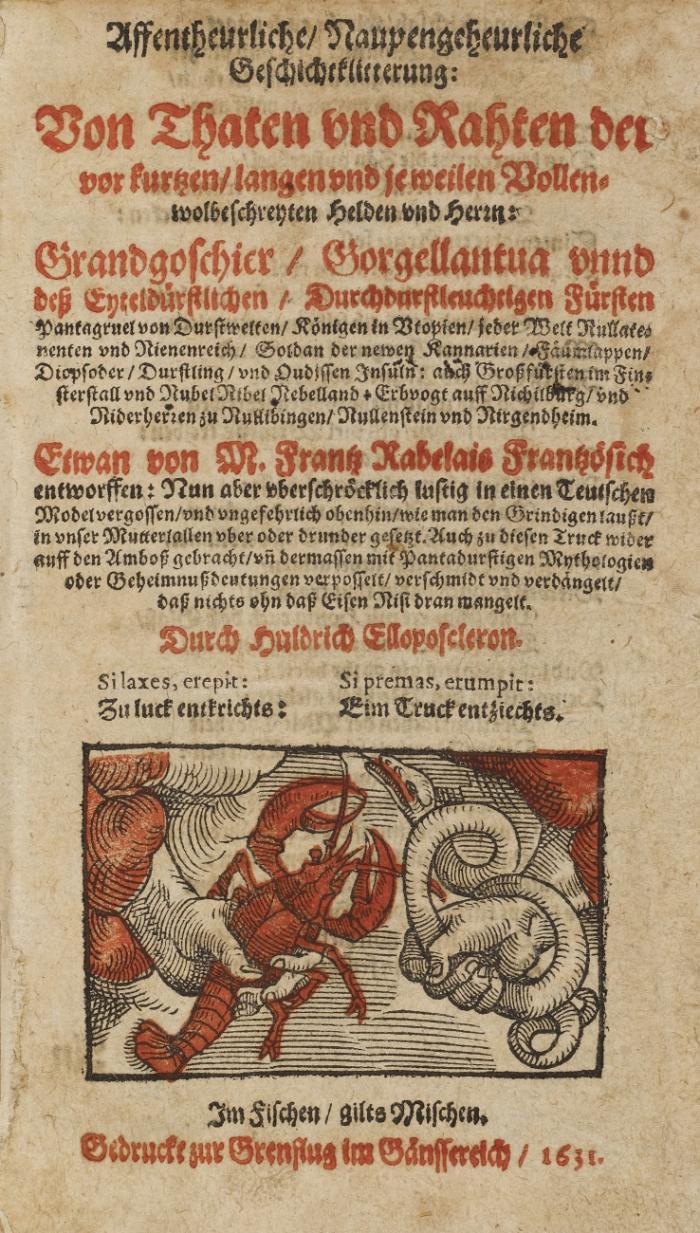 Affentheurliche/ Naupengeheurliche
Geschichtklitterung:
Von Thaten vnd Rahten der
vor kurtzen/ langen vnd je weilen Vollen-
wolbeschreyten Helden vnd Herrn:
Grandgoschier / Gorgellantua vnnd
deß Eyteldürstlichen / Durchdurstleuchtigen Fürsten
Pantagruel von Durstwelten/ Königen in Vtopien/ jeder Welt Nullate-
nenten vnd Nienenreich/ Soldan der newen Kannarien/ Fäumlappen/
Dipsoder/ Durstling/ vnd Oudissen Insuln: auch Großfürsten im Fin-
sterstall vnd Nubel Nibel Nebelland + Erbvogt auff Nichilburg/ vnd
Niderherren zu Nullibingen/ Nullenstein vnd Nirgendheim.
Etwan von M. Frantz Rabelais Frantzösich
entworffen: Nun aber vberschröcklich lustig in einen Teutschen
Model vergossen/ vnd vngefehrlich obenhin/ wie man den Grindigen laußt/
in vnser Mutterlallen vber oder drunder gesetzt. Auch zu diesen Truck wider
auff den Amboß gebracht/ vñ dermassen mit Pantadurstigen Mythologien
oder Geheimnußdeutungen verposselt/ verschmidt vnd verdängelt/
daß nichts ohn daß Eisen Nisi dran mangelt.
Durch Huldrich Elloposcleron.
Si laxes, erepit:
Zu luck entkrichts:
Si premas, erumpit:
Eim Truck entziechts.
Im Fischen/ gilts Mischen.
Gedruckt zur Grenflug im Gänssereich / 1631.